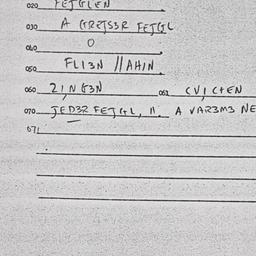 020 FEJGLEN
030 A GRETS3R FEJGL
040 O
050 FLI3N //AHIN
060 2INB3N 061 CVICTEN
070 JED32 FEJGL, A VAR3M3 NE
071